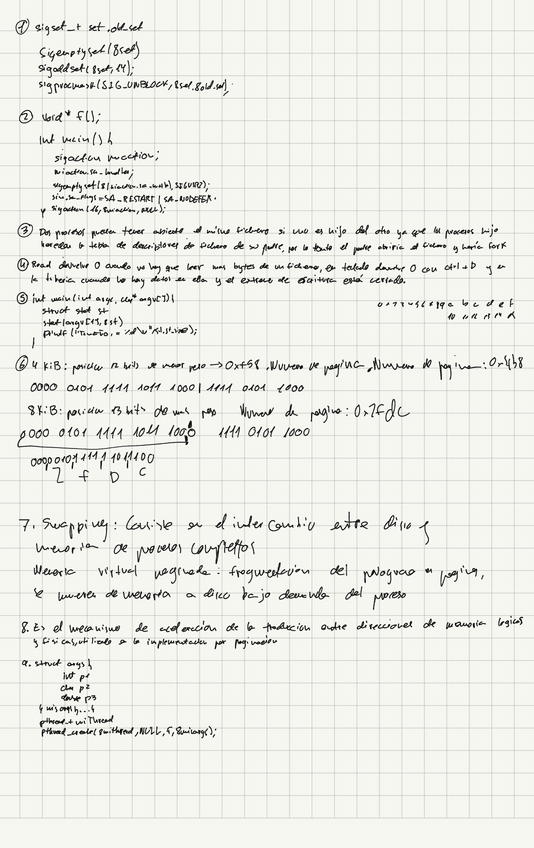 ① sigset_t set, old_set
sigemptyset(&set)
sigaddset(&set, 14);
sigprocmask(SIG_UNBLOCK, &set, &old_set);
② void* f();
int main() {
sigaction miaction;
miaction.sa_handler;
sigemptyset(&(miaction.sa_mask), SIGUSR2);
sa_flags = SA_RESTART | SA_NODEFER.
} sigaction(16, &miaction, NULL);
③ Dos procesos pueden tener abierto el mismo fichero si uno es hijo del otro ya que los procesos hijo
heredan la tabla de descriptores de fichero de su padre, por lo tanto el padre abriría el fichero y haría fork
④ Read devuelve 0 cuando no hay que leer más bytes de un fichero, en teclado devuelve 0 con ctrl+D y en
la tubería cuando no hay datos en ella y el extremo de escritura está cerrado.
⑤ int main(int argc, char* argv[]) {
0 1 2 3 4 5 6 7 8 9 a b c d e f
struct stat st
10 11 12 13 14 15
stat(argv[1], &st)
printf("Tamaño, = %d\n", st.st_size);
}
⑥ 4 KiB: posición 12 bits de menos peso → 0xf58, Número de página, Número de página: 0x5fb8
0000 0101 1111 1011 1000 | 1111 0101 1000
8 KiB: posición 13 bits de menos peso Número de página: 0x2fdC
0000 0101 1111 1011 1000 1111 0101 1000
0000 0101 1111 1011 100
2 f D C
7. Swapping: Consiste en el intercambio entre disco y
memoria de procesos completos
Memoria virtual paginada: fragmentación del programa en páginas,
se mueven de memoria a disco bajo demanda del proceso
8. Es el mecanismo de aceleración de la traducción entre direcciones de memoria lógicas
y físicas, utilizado en la implementación por paginación
9. struct args {
int p1
char p2
double p3
} misargs {...}
pthread_t miThread
pthread_create(&mithread, NULL, f, &misargs);